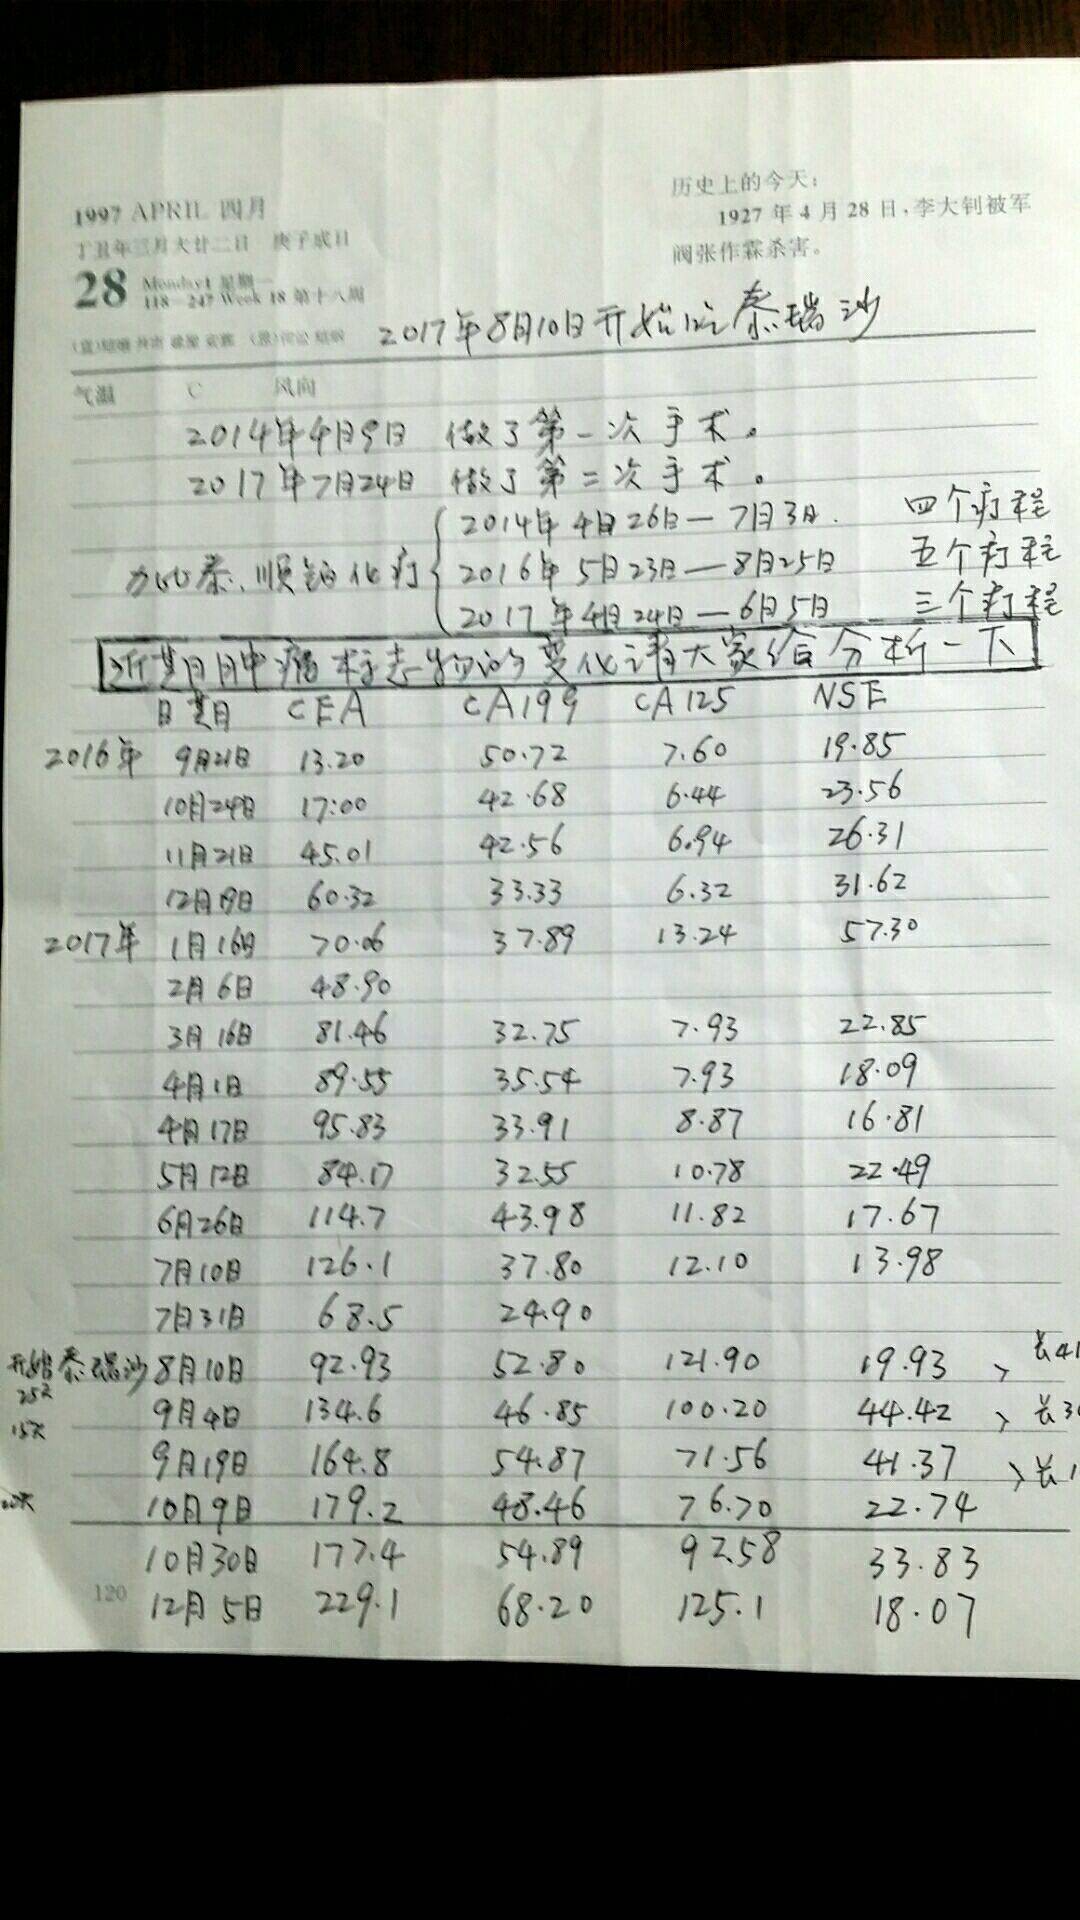 1997 APRIL 四月
丁丑年三月大廿二日 庚子成日
28 Monday 星期一
118—247 Week 18 第十八周
历史上的今天:
1927 年 4 月 28 日,李大钊被军
阀张作霖杀害。
2017年8月10日开始吃泰瑞沙
气温 C 风向
2014年4月9日 做了第一次手术。
2017年7月24日 做了第二次手术。
2014年4月26日—7月3日. 四个疗程
力比泰、顺铂化疗 2016年5月23日—8月25日 五个疗程
2017年4月24日—6月5日 三个疗程
近期肿瘤标志物的变化请大家给分析一下
日期 CEA CA199 CA125 NSE
2016年 9月21日 13.20 50.72 7.60 19.85
10月24日 17:00 42.68 6.44 23.56
11月21日 45.01 42.56 6.94 26.31
12月19日 60.32 33.33 6.32 31.62
2017年 1月16日 70.06 37.89 13.24 57.30
2月6日 48.90
3月16日 81.46 32.75 7.93 22.85
4月1日 89.55 35.54 7.93 18.09
4月17日 95.83 33.91 8.87 16.81
5月12日 84.17 32.55 10.78 22.49
6月26日 114.7 43.98 11.82 17.67
7月10日 126.1 37.80 12.10 13.98
7月31日 68.5 24.90
开始泰瑞沙 8月10日 92.93 52.80 121.90 19.93 长41
25天 9月4日 134.6 46.85 100.20 44.42 长30
15天 9月19日 164.8 54.87 71.56 41.37 长1
10月9日 179.2 48.46 76.70 22.74
10月30日 177.4 54.89 92.58 33.83
120 12月5日 229.1 68.20 125.1 18.07